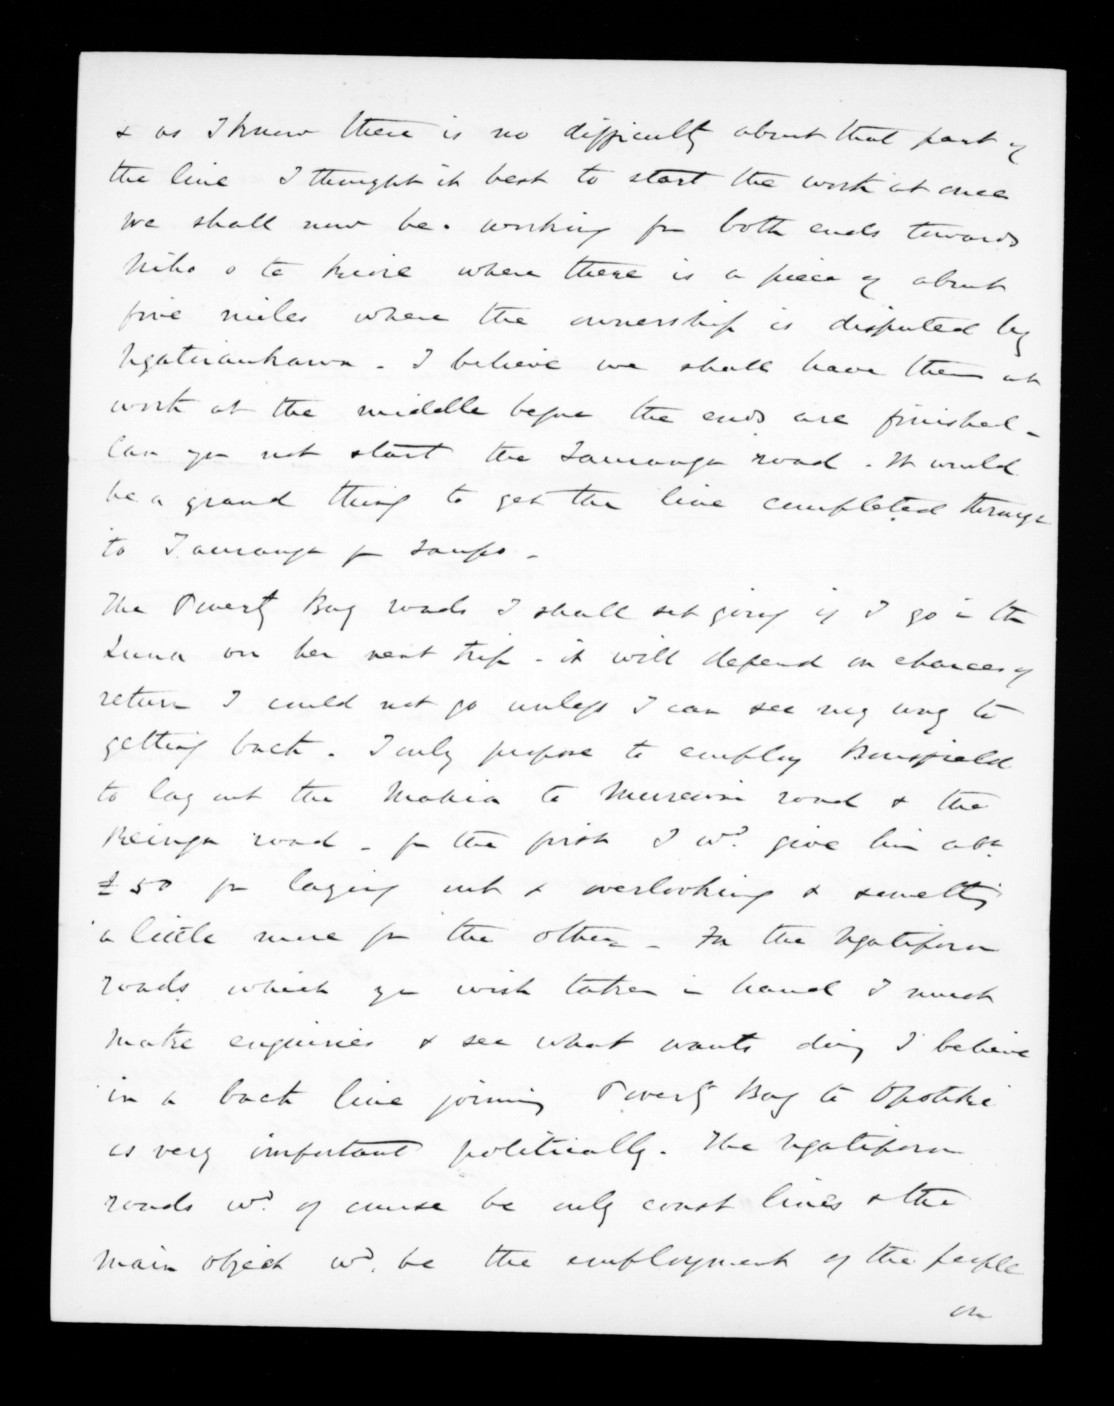 & as I know there is no difficulty about that part of
the line I thought it best to start the work at once
we shall now be working fm both ends towards
Niho o te kiore where there is a piece of about
five miles where the ownership is disputed by
Ngatiraukawa - I believe we shall have them at
work at the middle before the ends are finished -
Can you not start the Tauranga road. It would
be a grand thing to get the line completed through
to Tauranga fm Taupo -
The Poverty Bay roads I shall set going if I go in the
Luna on her next trip - it will depend on chances of
return I could not go unless I can see my way to
getting back. I only propose to employ Bousfield
to lay out the Mahia to Muriwai road & the
Reinga road - for the first I wd. give him abt.
£50 for laying out & overlooking & something
a little more for the other - For the Ngatiporou
roads which you wish taken in hand I must
make enquiries & see what wants doing I believe
in a back line joining Poverty Bay to Opotiki
is very important politically. The Ngatiporou
roads wd. of course be only coast lines & the
main object wd. be the employment of the people
on